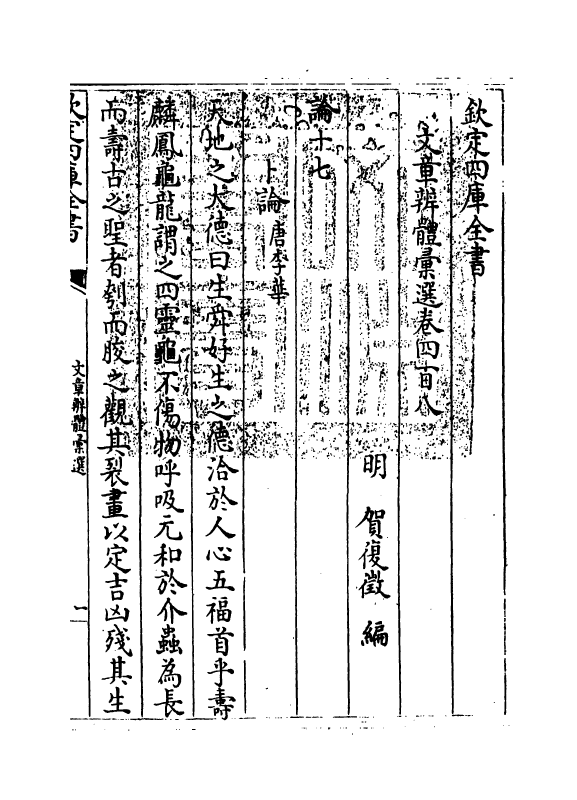 欽定四庫全書
文章辨體彙選卷四百八
明　賀復徵　編
論十七
卜論唐李華
天地之大德曰生舜好生之德洽於人心五福首乎壽
麟鳳龜龍謂之四靈龜不傷物呼吸元和於介蟲為長
而壽古之聖者刳而朘之觀其裂畫以定吉凶殘其生
欽定四庫全書
文章辨體彙選
一